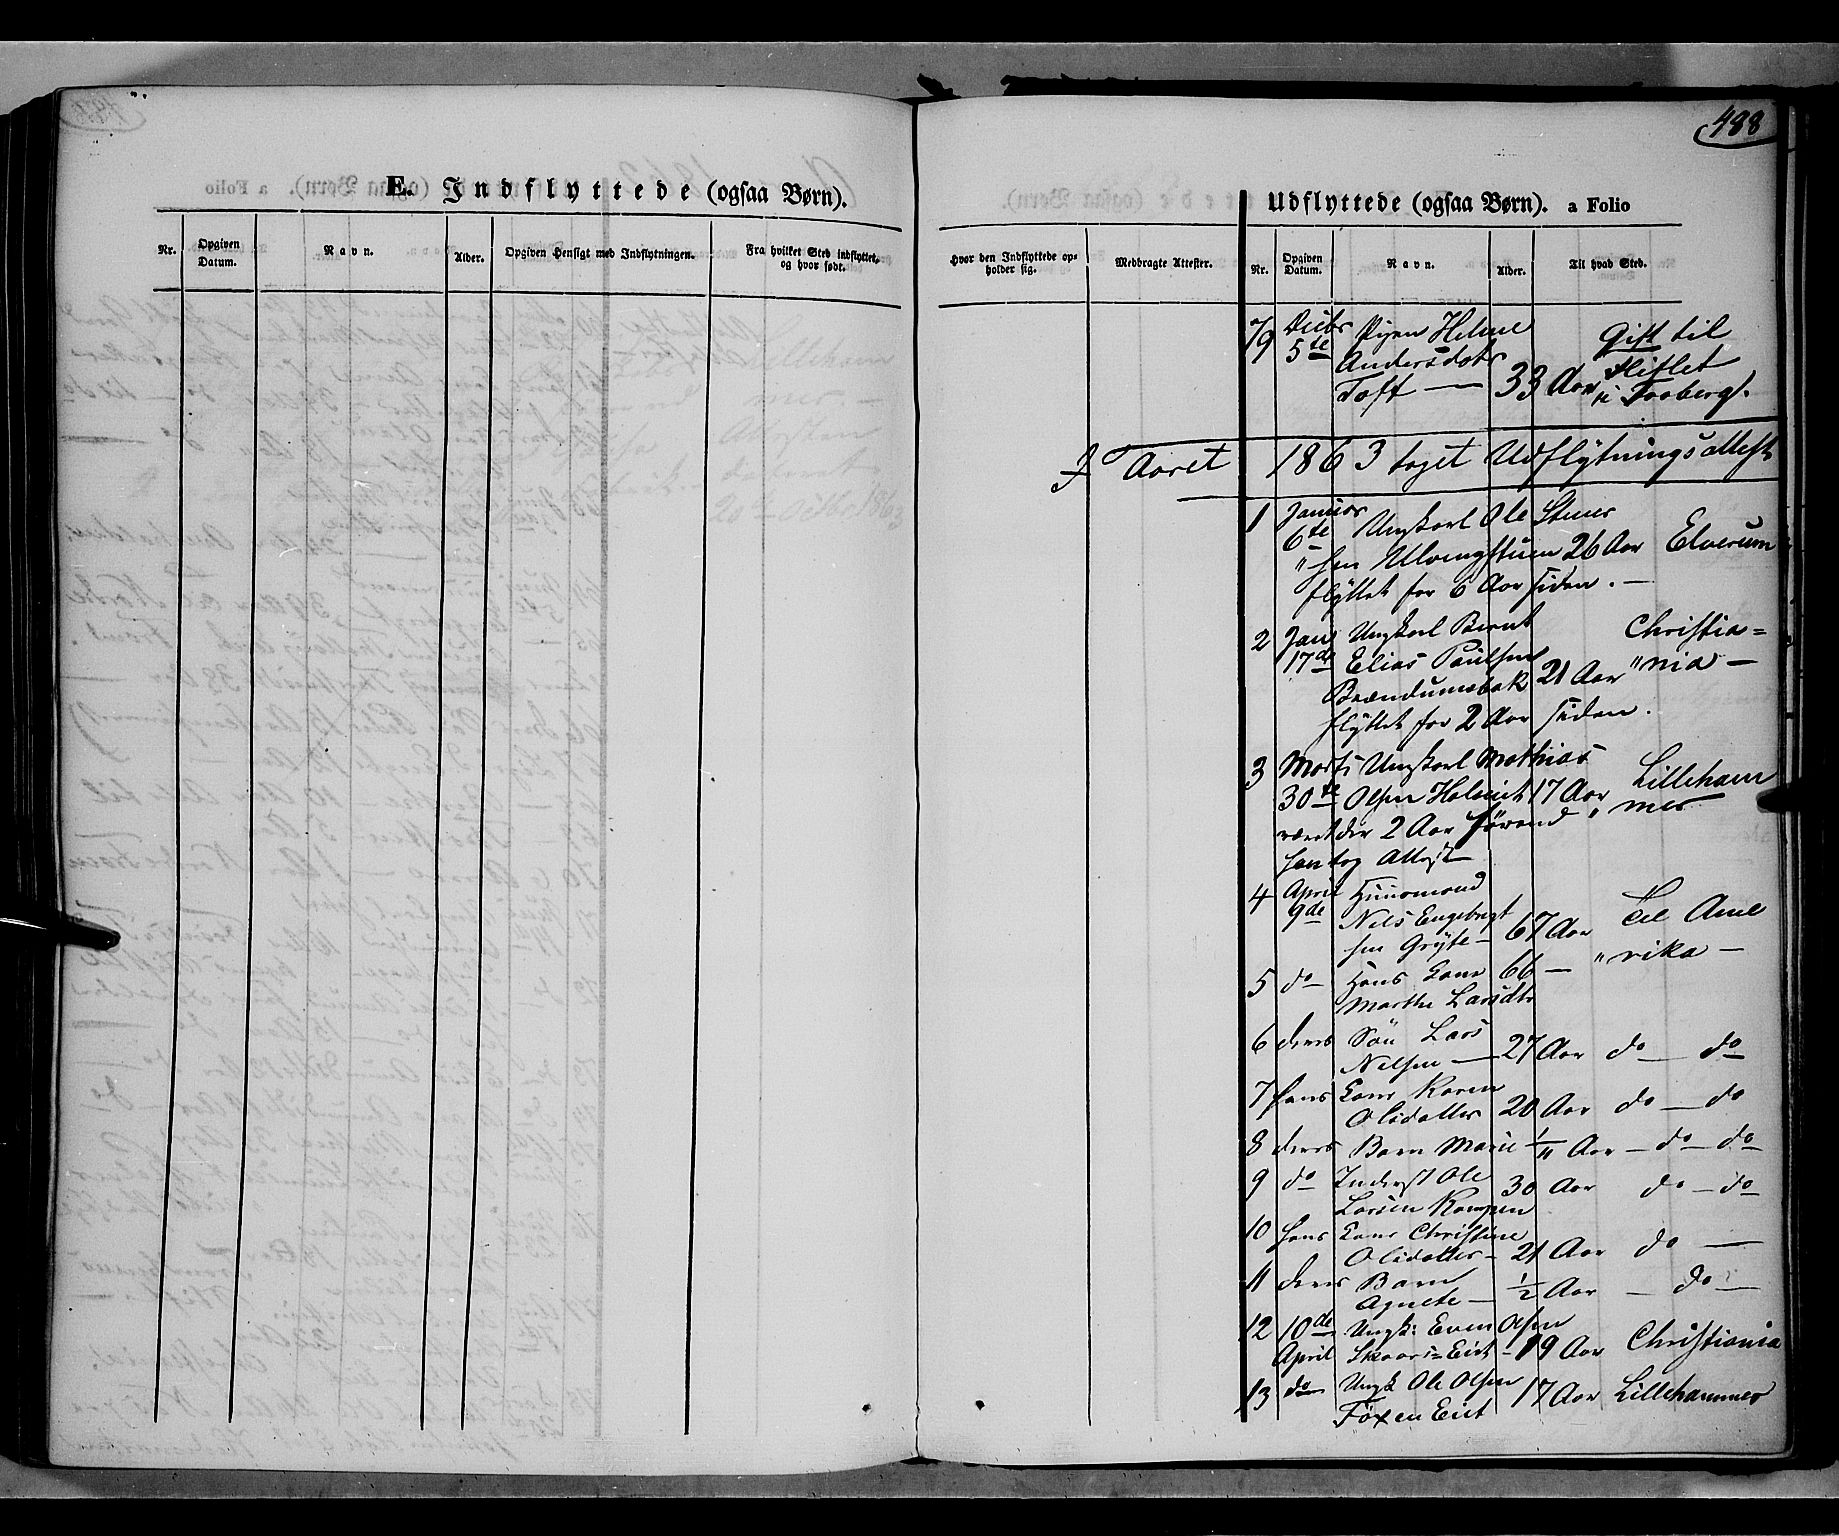 488
E. Indflyttede (ogsaa Børn).
Nr.
Opgiven Datum.
Navn.
Alder.
Opgiven Hensigt med Indflytningen.
Fra hvilket Sted indflyttet, og hvor født.
Udflyttede (ogsaa Børn). a Folio
Hvor den Indflyttede opholder sig.
Medbragte Attester.
Nr.
Opgiven Datum.
Navn.
Alder.
Til hvad Sted.
79 Decbr Pigen Helene Gift til
5te Andersdotr
Toft — 33 Aar i Faaberg.
I Aaret 1863 taget Udflytningsattest
1 Januar Ungkarl Ole Stener
6te "sen Ulvengstuen 26 Aar Elverum
flyttet for 6 Aar siden. —
2 Jan Ungkarl Bernt Christia=
17de Elias Paulsen 21 Aar "nia —
Brændumsbak
flyttet for 2 Aar siden.
3 Marts Ungkarl Mathias Lilleham
30te Olsen 17 Aar "mer
været der 2 Aar førend
han tog Attest
4 April Huusmand
9de Nels Engebregt 67 Aar Til Ame
sen Gryte — "rika —
5 do Hans Kone 66 —
Marthe Larsdtr
6 deres Søn Lars
Nelsen — 27 Aar do — do
7 hans Kone Karen
Olsdatter 20 Aar do — do
8 deres Barn Marie — 1/11 Aar — do — do
9 do Inderst Ole 30 Aar do — do
Larsen Kampen
10 hans Kone Christine
Olsdatter — 21 Aar do —
11 deres Barn
Agnete — 1/2 Aar — do —
12 10de Ungk: Even Olsen
April Skaars=Eiet — 19 Aar Christiania
13 do Ungk Ole Olsen 17 Aar Lillehammer
Eiet